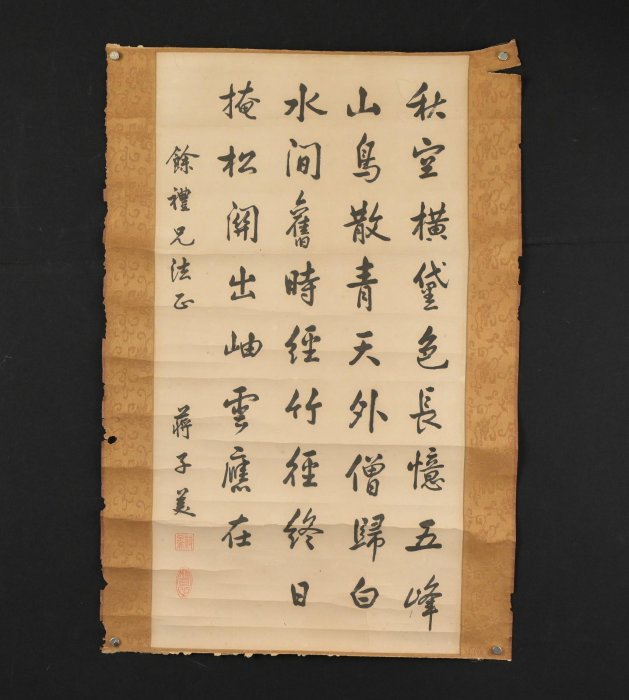 秋空橫黛色長憶五峰
山鳥散青天外僧歸白
水間舊時經竹徑終日
掩松關出岫雲應在
餘禮兄法正
蔣子美